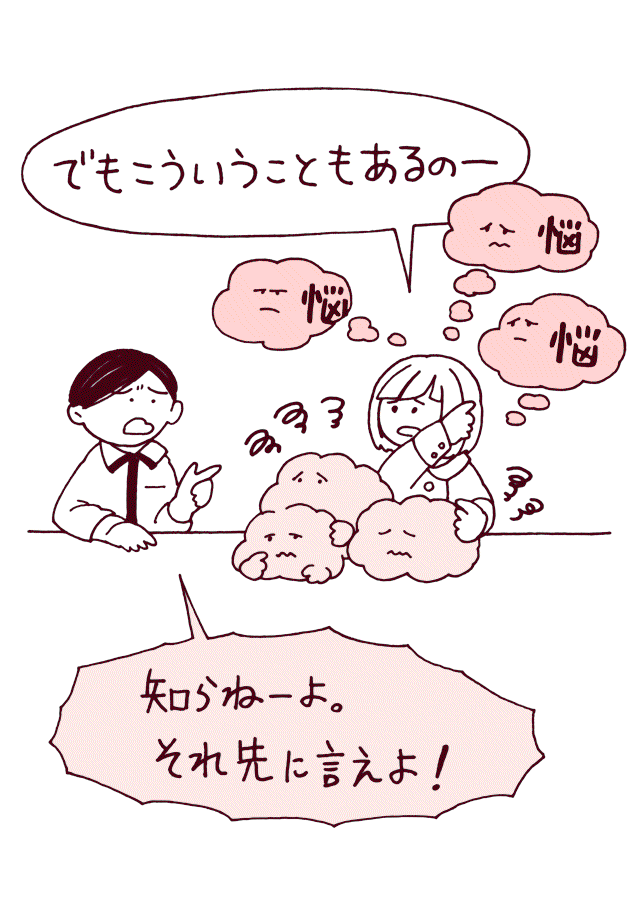 でもこういうこともあるのー
悩
悩
悩
知らねーよ。
それ先に言えよ！